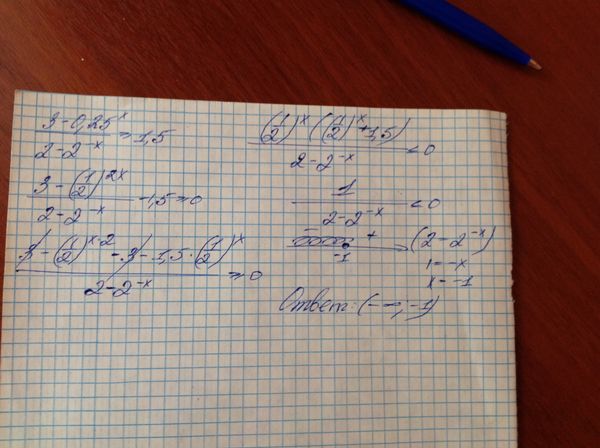 3 - 0,25^x / 2 - 2^-x ≥ 1,5
3 - (1/2)^2x / 2 - 2^-x - 1,5 ≥ 0
3 - (1/2)^x·2 - 3 - 1,5 · (1/2)^x / 2 - 2^-x ≥ 0
(1/2)^x ((1/2)^x + 1,5) / 2 - 2^-x < 0
1 / 2 - 2^-x < 0
+
-1
(2 - 2^-x)
1 = -x
x = -1
Ответ: (-∞; -1)